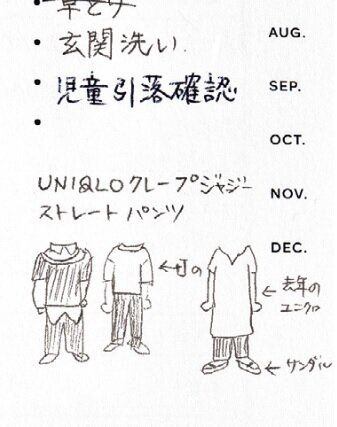 草とり
玄関洗い
児童引落確認
AUG.
SEP.
OCT.
NOV.
DEC.
UNIQLOクレープジャジー
ストレートパンツ
←丁の
←去年の
ユニクロ
←サンダル